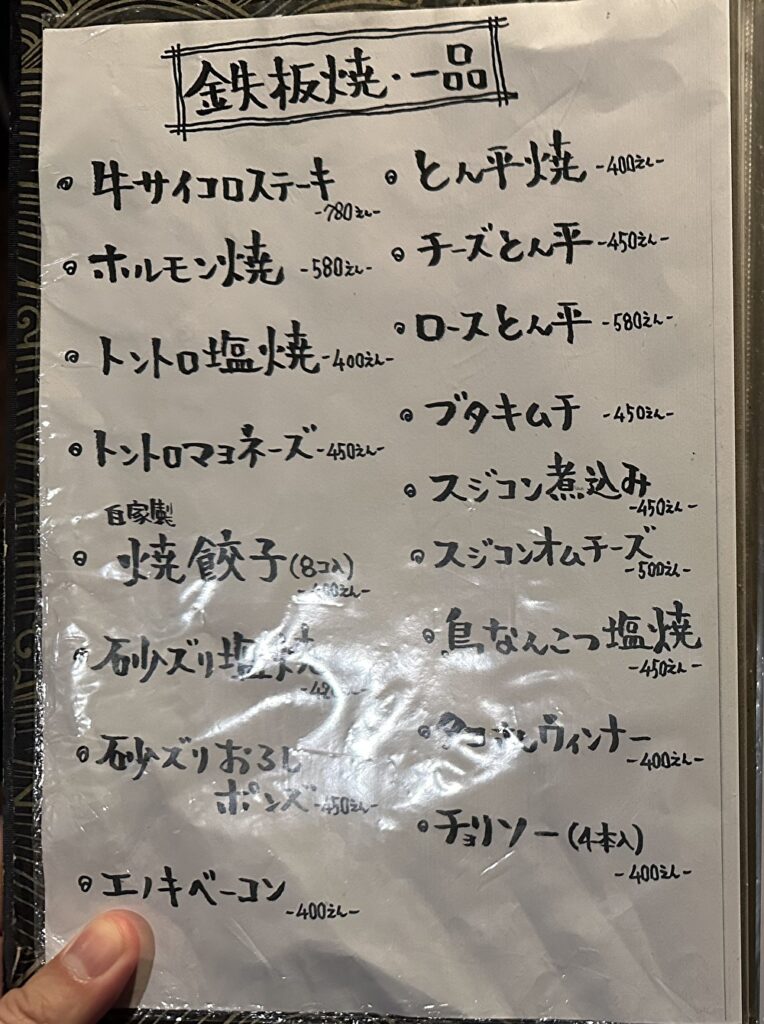 鉄板焼・一品
牛サイコロステーキ
-780えん-
ホルモン焼 -580えん-
トントロ塩焼 -400えん-
トントロマヨネーズ -450えん-
自家製
焼餃子(8コ入)
えん-
砂ズリ塩焼
砂ズリおろし
ポンズ -450えん-
エノキベーコン
-400えん-
とん平焼 -400えん-
チーズとん平 -450えん-
ロースとん平 -580えん-
ブタキムチ -450えん-
スジコン煮込み
-450えん-
スジコンオムチーズ
-500えん-
鳥なんこつ塩焼
-450えん-
ウィンナー
-400えん-
チョリソー(4本入)
-400えん-